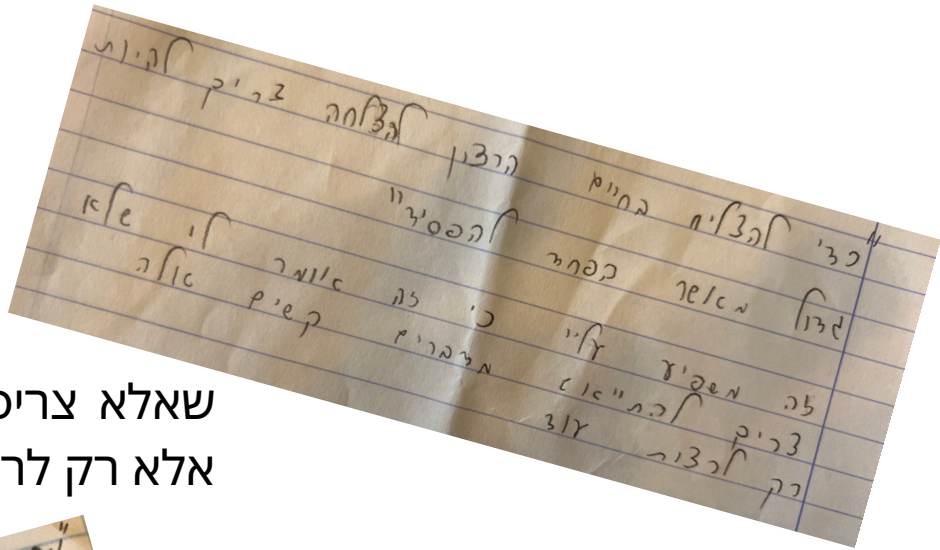 "כדי להצליח בחיים הרצון להצלחה צריך להיות
גדול מאשר הפחד להפסיד"
זה משפיע עליי כי זה אומר לי שלא
צריך להתייאש מדברים קשים אלה
רק לרצות עוד
שאלא צריכ
אלא רק לר